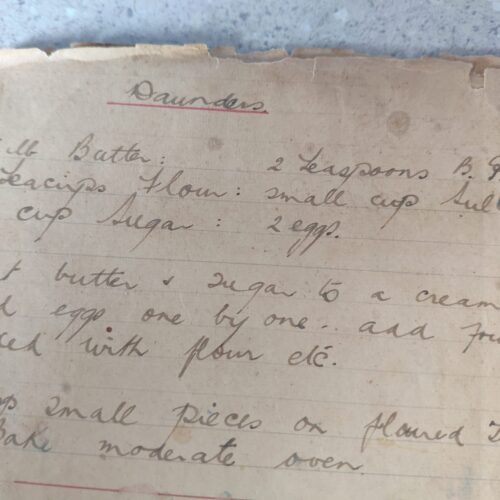 Daunders
lb Butter: 2 teaspoons B. P
Teacups Flour: small cup Sul
cup Sugar: 2 eggs.
t butter & sugar to a cream
d eggs one by one.. add fru
ed with flour etc.
p small pieces on floured T
Bake moderate oven.